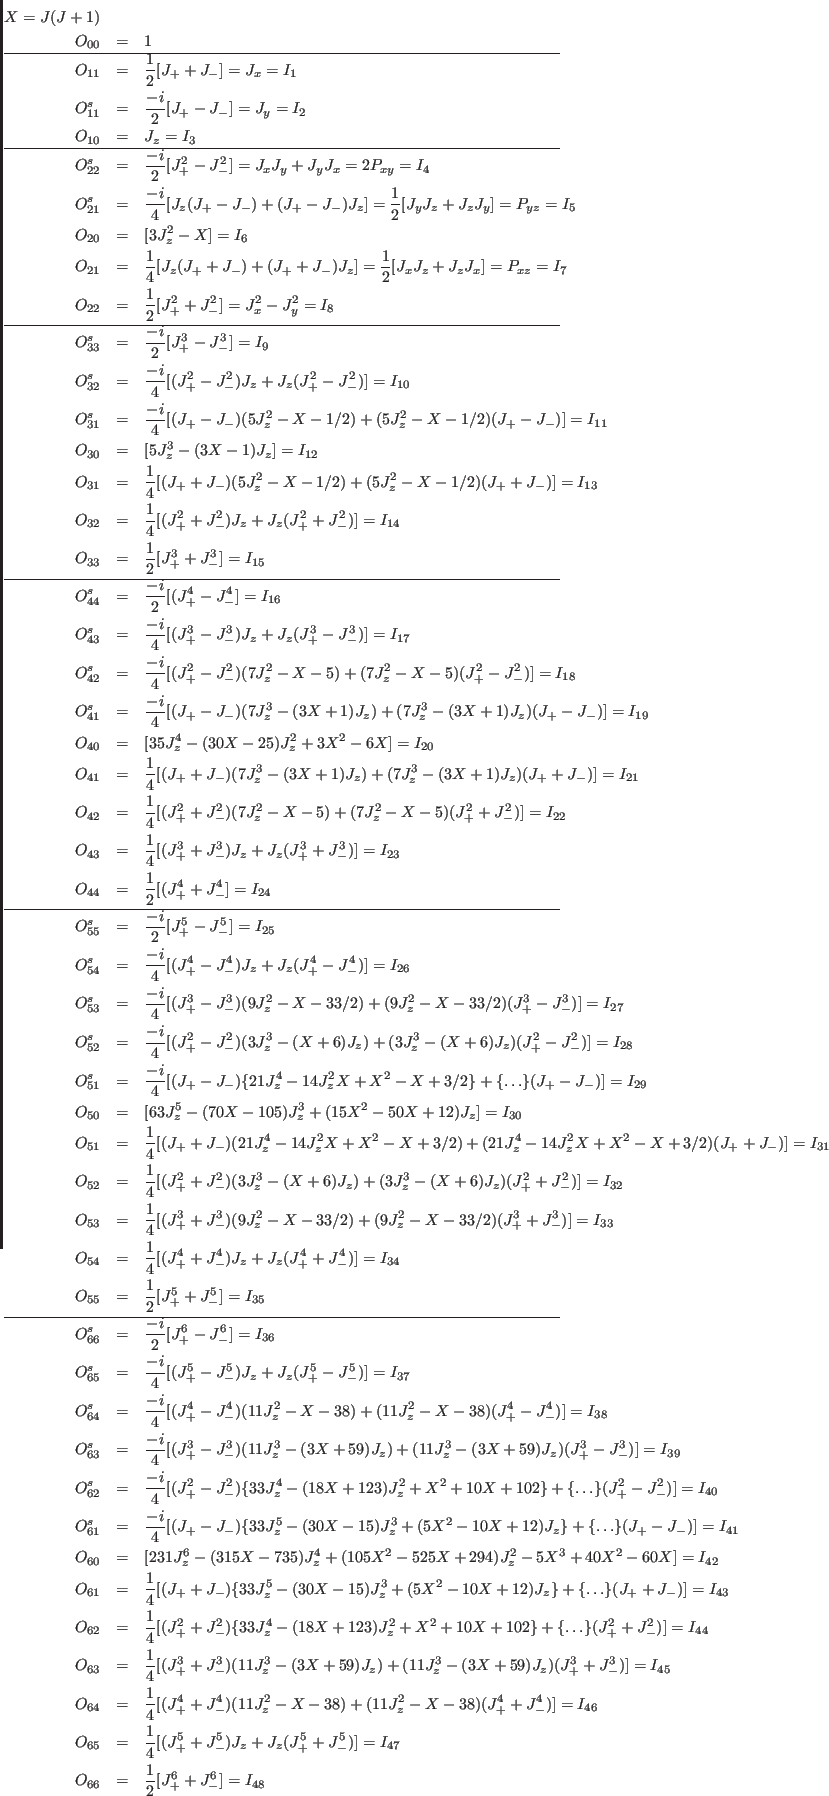 X = J(J + 1)
O_{00} = 1
O_{11} = \frac{1}{2}[J_+ + J_-] = J_x = I_1
O^s_{11} = \frac{-i}{2}[J_+ - J_-] = J_y = I_2
O_{10} = J_z = I_3
O^s_{22} = \frac{-i}{2}[J_+^2 - J_-^2] = J_xJ_y + J_yJ_x = 2P_{xy} = I_4
O^s_{21} = \frac{-i}{4}[J_z(J_+ - J_-) + (J_+ - J_-)J_z] = \frac{1}{2}[J_yJ_z + J_zJ_y] = P_{yz} = I_5
O_{20} = [3J_z^2 - X] = I_6
O_{21} = \frac{1}{4}[J_z(J_+ + J_-) + (J_+ + J_-)J_z] = \frac{1}{2}[J_xJ_z + J_zJ_x] = P_{xz} = I_7
O_{22} = \frac{1}{2}[J_+^2 + J_-^2] = J_x^2 - J_y^2 = I_8
O^s_{33} = \frac{-i}{2}[J_+^3 - J_-^3] = I_9
O^s_{32} = \frac{-i}{4}[(J_+^2 - J_-^2)J_z + J_z(J_+^2 - J_-^2)] = I_{10}
O^s_{31} = \frac{-i}{4}[(J_+ - J_-)(5J_z^2 - X - 1/2) + (5J_z^2 - X - 1/2)(J_+ - J_-)] = I_{11}
O_{30} = [5J_z^3 - (3X - 1)J_z] = I_{12}
O_{31} = \frac{1}{4}[(J_+ + J_-)(5J_z^2 - X - 1/2) + (5J_z^2 - X - 1/2)(J_+ + J_-)] = I_{13}
O_{32} = \frac{1}{4}[(J_+^2 + J_-^2)J_z + J_z(J_+^2 + J_-^2)] = I_{14}
O_{33} = \frac{1}{2}[J_+^3 + J_-^3] = I_{15}
O^s_{44} = \frac{-i}{2}[(J_+^4 - J_-^4] = I_{16}
O^s_{43} = \frac{-i}{4}[(J_+^3 - J_-^3)J_z + J_z(J_+^3 - J_-^3)] = I_{17}
O^s_{42} = \frac{-i}{4}[(J_+^2 - J_-^2)(7J_z^2 - X - 5) + (7J_z^2 - X - 5)(J_+^2 - J_-^2)] = I_{18}
O^s_{41} = \frac{-i}{4}[(J_+ - J_-)(7J_z^3 - (3X + 1)J_z) + (7J_z^3 - (3X + 1)J_z)(J_+ - J_-)] = I_{19}
O_{40} = [35J_z^4 - (30X - 25)J_z^2 + 3X^2 - 6X] = I_{20}
O_{41} = \frac{1}{4}[(J_+ + J_-)(7J_z^3 - (3X + 1)J_z) + (7J_z^3 - (3X + 1)J_z)(J_+ + J_-)] = I_{21}
O_{42} = \frac{1}{4}[(J_+^2 + J_-^2)(7J_z^2 - X - 5) + (7J_z^2 - X - 5)(J_+^2 + J_-^2)] = I_{22}
O_{43} = \frac{1}{4}[(J_+^3 + J_-^3)J_z + J_z(J_+^3 + J_-^3)] = I_{23}
O_{44} = \frac{1}{2}[(J_+^4 + J_-^4] = I_{24}
O^s_{55} = \frac{-i}{2}[J_+^5 - J_-^5] = I_{25}
O^s_{54} = \frac{-i}{4}[(J_+^4 - J_-^4)J_z + J_z(J_+^4 - J_-^4)] = I_{26}
O^s_{53} = \frac{-i}{4}[(J_+^3 - J_-^3)(9J_z^2 - X - 33/2) + (9J_z^2 - X - 33/2)(J_+^3 - J_-^3)] = I_{27}
O^s_{52} = \frac{-i}{4}[(J_+^2 - J_-^2)(3J_z^3 - (X + 6)J_z) + (3J_z^3 - (X + 6)J_z)(J_+^2 - J_-^2)] = I_{28}
O^s_{51} = \frac{-i}{4}[(J_+ - J_-)\{21J_z^4 - 14J_z^2X + X^2 - X + 3/2\} + \{...\}(J_+ - J_-)] = I_{29}
O_{50} = [63J_z^5 - (70X - 105)J_z^3 + (15X^2 - 50X + 12)J_z] = I_{30}
O_{51} = \frac{1}{4}[(J_+ + J_-)(21J_z^4 - 14J_z^2X + X^2 - X + 3/2) + (21J_z^4 - 14J_z^2X + X^2 - X + 3/2)(J_+ + J_-)] = I_{31}
O_{52} = \frac{1}{4}[(J_+^2 + J_-^2)(3J_z^3 - (X + 6)J_z) + (3J_z^3 - (X + 6)J_z)(J_+^2 + J_-^2)] = I_{32}
O_{53} = \frac{1}{4}[(J_+^3 + J_-^3)(9J_z^2 - X - 33/2) + (9J_z^2 - X - 33/2)(J_+^3 + J_-^3)] = I_{33}
O_{54} = \frac{1}{4}[(J_+^4 + J_-^4)J_z + J_z(J_+^4 + J_-^4)] = I_{34}
O_{55} = \frac{1}{2}[J_+^5 + J_-^5] = I_{35}
O^s_{66} = \frac{-i}{2}[J_+^6 - J_-^6] = I_{36}
O^s_{65} = \frac{-i}{4}[(J_+^5 - J_-^5)J_z + J_z(J_+^5 - J_-^5)] = I_{37}
O^s_{64} = \frac{-i}{4}[(J_+^4 - J_-^4)(11J_z^2 - X - 38) + (11J_z^2 - X - 38)(J_+^4 - J_-^4)] = I_{38}
O^s_{63} = \frac{-i}{4}[(J_+^3 - J_-^3)(11J_z^3 - (3X + 59)J_z) + (11J_z^3 - (3X + 59)J_z)(J_+^3 - J_-^3)] = I_{39}
O^s_{62} = \frac{-i}{4}[(J_+^2 - J_-^2)\{33J_z^4 - (18X + 123)J_z^2 + X^2 + 10X + 102\} + \{...\}(J_+^2 - J_-^2)] = I_{40}
O^s_{61} = \frac{-i}{4}[(J_+ - J_-)\{33J_z^5 - (30X - 15)J_z^3 + (5X^2 - 10X + 12)J_z\} + \{...\}(J_+ - J_-)] = I_{41}
O_{60} = [231J_z^6 - (315X - 735)J_z^4 + (105X^2 - 525X + 294)J_z^2 - 5X^3 + 40X^2 - 60X] = I_{42}
O_{61} = \frac{1}{4}[(J_+ + J_-)\{33J_z^5 - (30X - 15)J_z^3 + (5X^2 - 10X + 12)J_z\} + \{...\}(J_+ + J_-)] = I_{43}
O_{62} = \frac{1}{4}[(J_+^2 + J_-^2)\{33J_z^4 - (18X + 123)J_z^2 + X^2 + 10X + 102\} + \{...\}(J_+^2 + J_-^2)] = I_{44}
O_{63} = \frac{1}{4}[(J_+^3 + J_-^3)(11J_z^3 - (3X + 59)J_z) + (11J_z^3 - (3X + 59)J_z)(J_+^3 + J_-^3)] = I_{45}
O_{64} = \frac{1}{4}[(J_+^4 + J_-^4)(11J_z^2 - X - 38) + (11J_z^2 - X - 38)(J_+^4 + J_-^4)] = I_{46}
O_{65} = \frac{1}{4}[(J_+^5 + J_-^5)J_z + J_z(J_+^5 + J_-^5)] = I_{47}
O_{66} = \frac{1}{2}[J_+^6 + J_-^6] = I_{48}